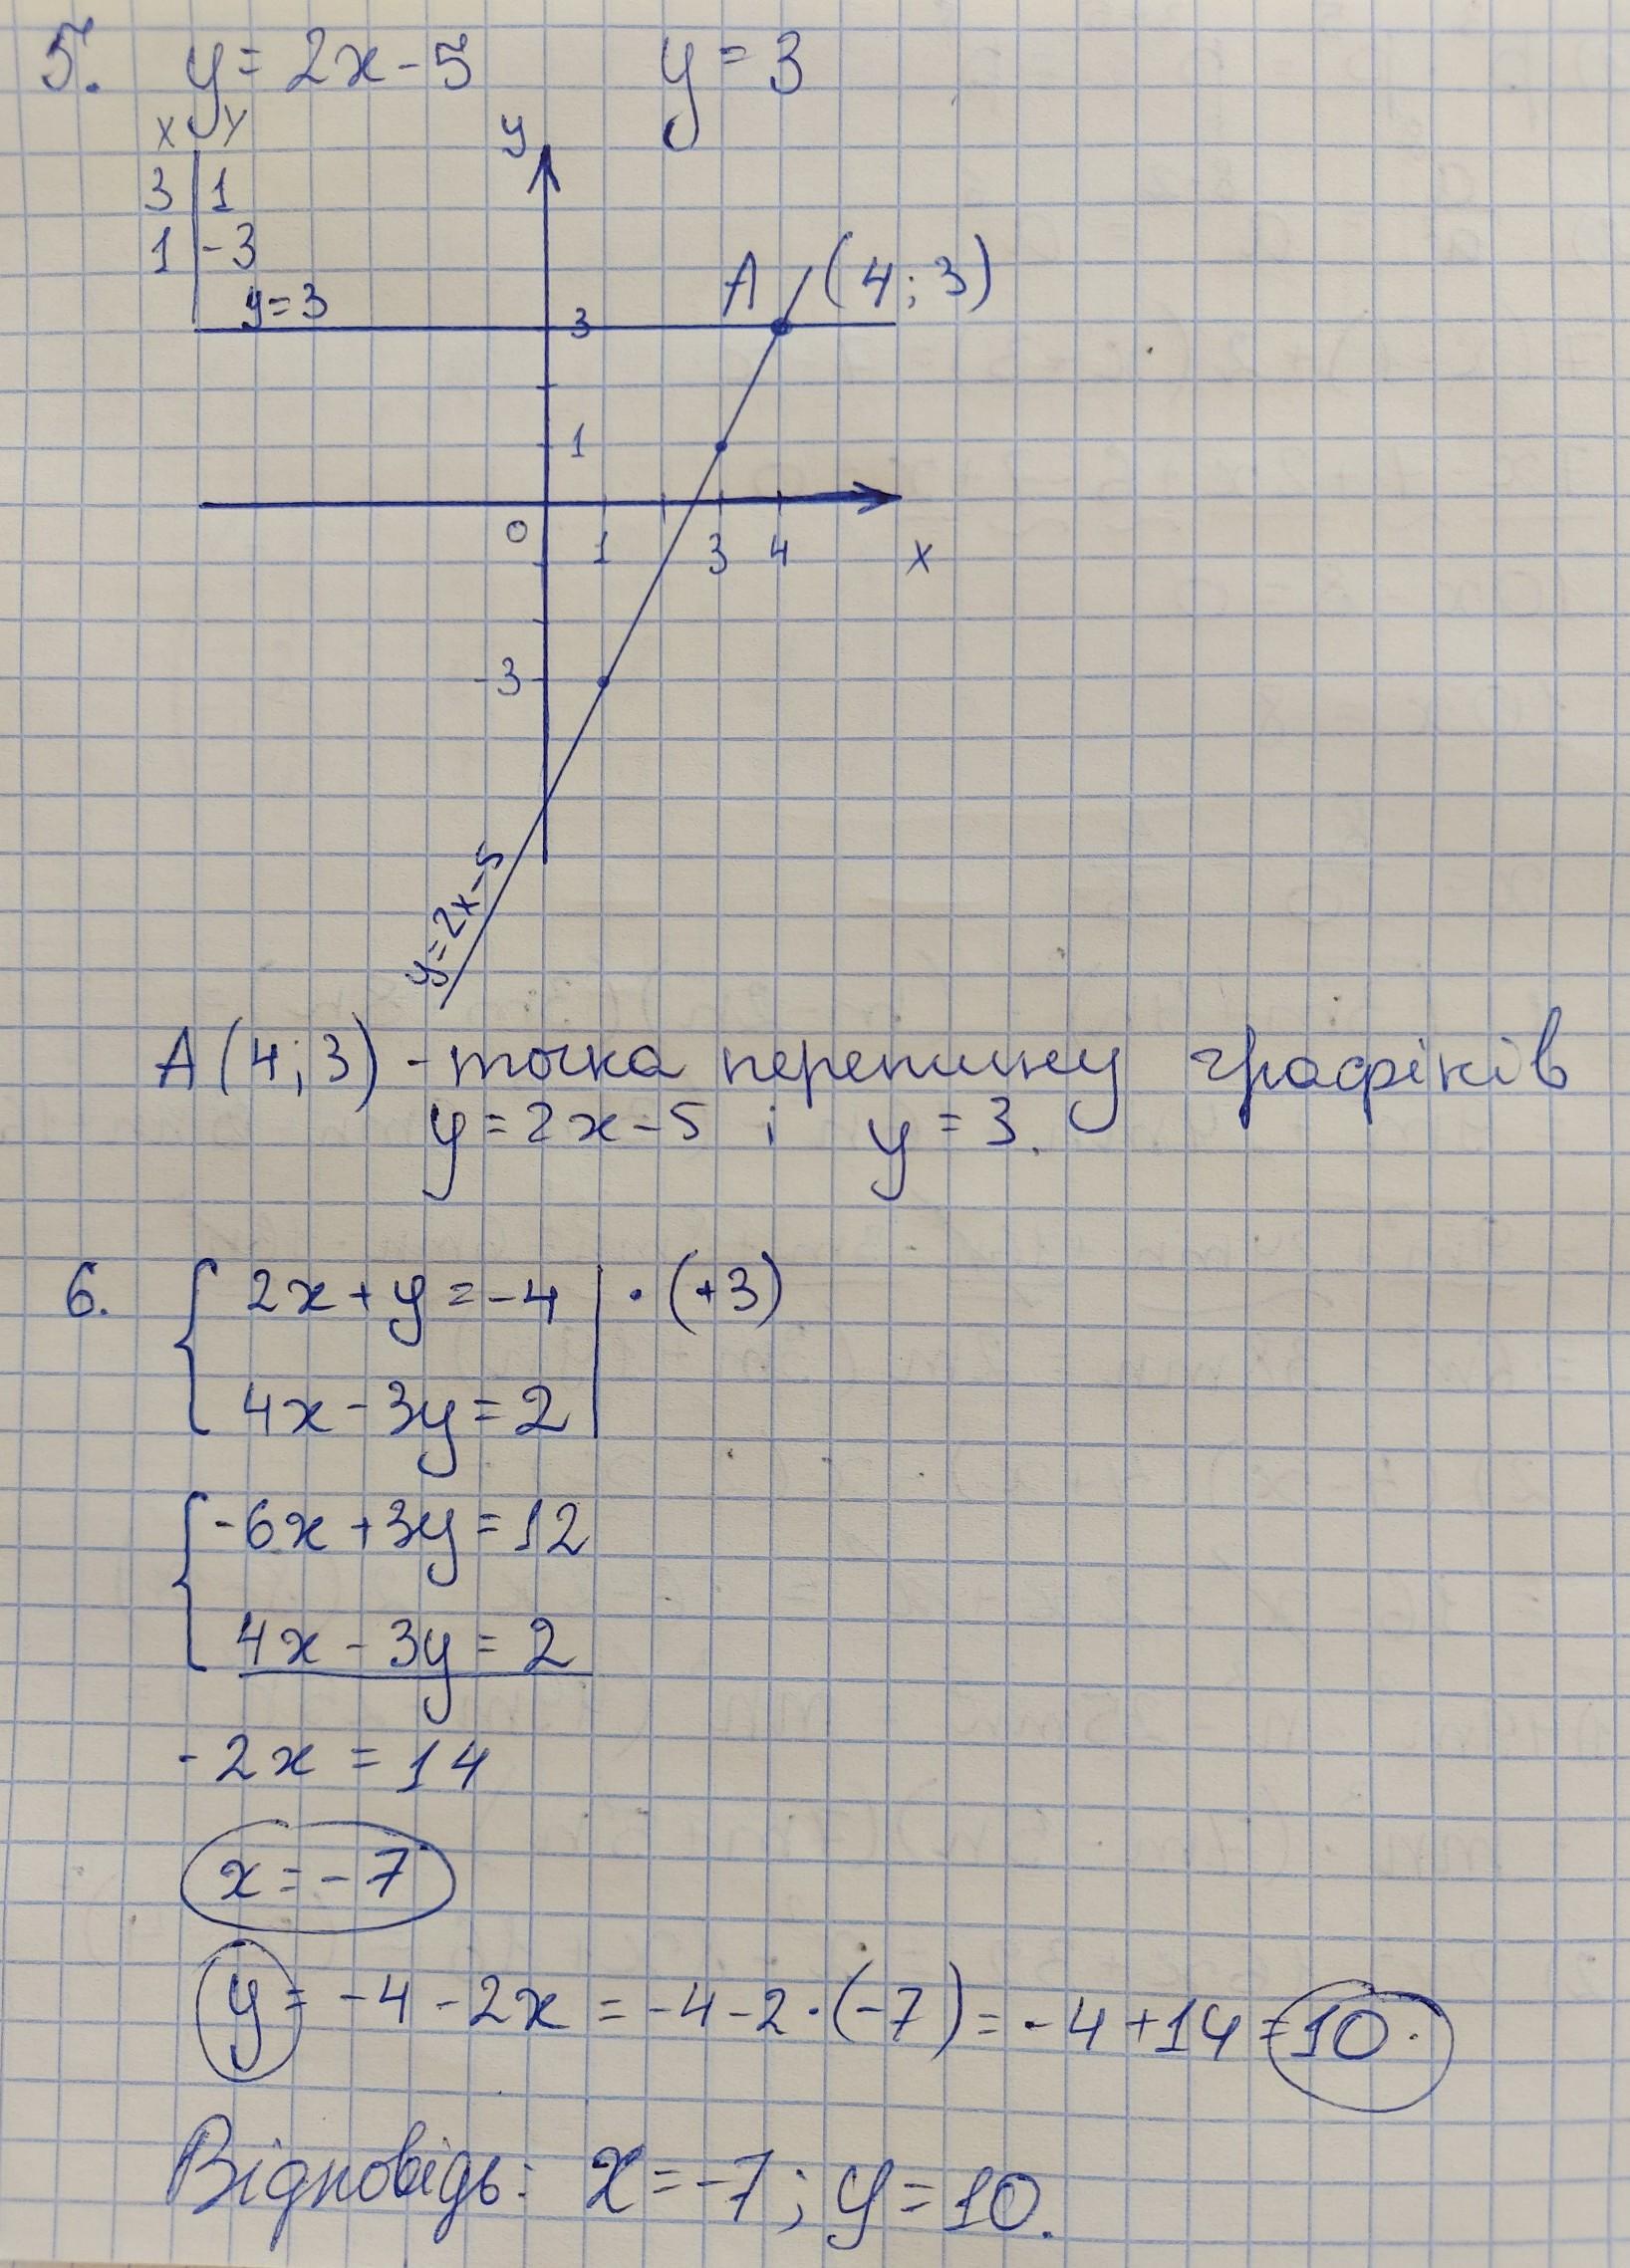 5. y = 2x - 5 y = 3
x y
3 1
1 -3
y = 3
y
A (4; 3)
3
1
0 1 3 4 x
-3
y = 2x - 5
A (4; 3) - точка перетину графіків
y = 2x - 5 і y = 3.
6. { 2x + y = -4 | · (+3)
4x - 3y = 2
{ -6x + 3y = 12
4x - 3y = 2
-2x = 14
x = -7
y = -4 - 2x = -4 - 2 · (-7) = -4 + 14 = 10.
Відповідь: x = -7; y = 10.